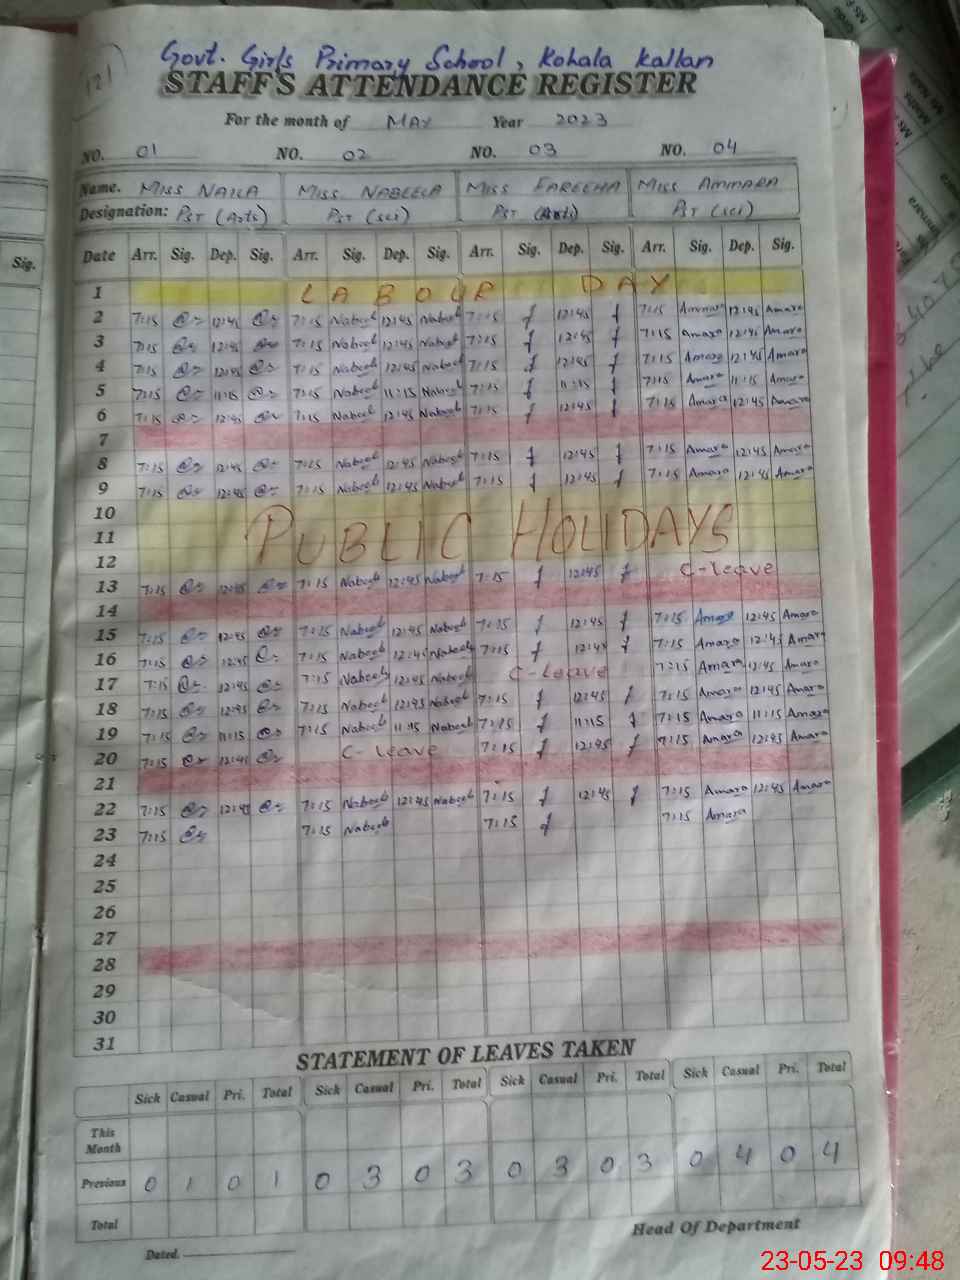 121
Govt. Girls Primary School, Kohala Kallan
STAFF'S ATTENDANCE REGISTER
For the month of MAY Year 2023
NO. 01 NO. 02 NO. 03 NO. 04
Name. MISS NAILA MISS NABEELA MISS FAREEHA MISS AMMARA
Designation: PST (Arts) PST (sci) PST (Arts) PST (sci)
Sig.
Date Arr. Sig. Dep. Sig. Arr. Sig. Dep. Sig. Arr. Sig. Dep. Sig. Arr. Sig. Dep. Sig.
1 LABOUR DAY
2 7:15 12:45 7:15 Nabeel 12:45 Nabeel 7:15 f 12:45 f 7:15 Ammara 12:45 Amara
3 7:15 12:45 7:15 Nabeel 12:45 Nabeel 7:15 f 12:45 f 7:15 Amara 12:45 Amara
4 7:15 12:45 7:15 Nabeel 12:45 Nabeel 7:15 f 12:45 f 7:15 Amara 12:45 Amara
5 7:15 11:15 7:15 Nabeel 11:15 Nabeel 7:15 f 11:15 f 7:15 Amara 11:15 Amara
6 7:15 12:45 7:15 Nabeel 12:45 Nabeel 7:15 f 12:45 f 7:15 Amara 12:45 Amara
7
8 7:15 12:45 7:15 Nabeel 12:45 Nabeel 7:15 f 12:45 f 7:15 Amara 12:45 Amara
9 7:15 12:45 7:15 Nabeel 12:45 Nabeel 7:15 f 12:45 f 7:15 Amara 12:45 Amara
10
11 PUBLIC HOLIDAYS
12
13 7:15 12:45 7:15 Nabeel 12:45 Nabeel 7:15 f 12:45 f C-leave
14
15 7:15 12:45 7:15 Nabeel 12:45 Nabeel 7:15 f 12:45 f 7:15 Amara 12:45 Amara
16 7:15 12:45 7:15 Nabeel 12:45 Nabeel 7:15 f 12:45 f 7:15 Amara 12:45 Amara
17 7:15 12:45 7:15 Nabeel 12:45 Nabeel C-Leave 7:15 Amara 12:45 Amara
18 7:15 12:45 7:15 Nabeel 12:45 Nabeel 7:15 f 12:45 f 7:15 Amara 12:45 Amara
19 7:15 11:15 7:15 Nabeel 11:15 Nabeel 7:15 f 11:15 f 7:15 Amara 11:15 Amara
20 7:15 12:45 C-leave 7:15 f 12:45 f 7:15 Amara 12:45 Amara
21
22 7:15 12:45 7:15 Nabeel 12:45 Nabeel 7:15 f 12:45 f 7:15 Amara 12:45 Amara
23 7:15 7:15 Nabeel 7:15 f 7:15 Amara
24
25
26
27
28
29
30
31
STATEMENT OF LEAVES TAKEN
Sick Casual Pri. Total Sick Casual Pri. Total Sick Casual Pri. Total Sick Casual Pri. Total
This
Month
Previous 0 1 0 1 0 3 0 3 0 3 0 3 0 4 0 4
Total
Head Of Department
Dated.
23-05-23 09:48